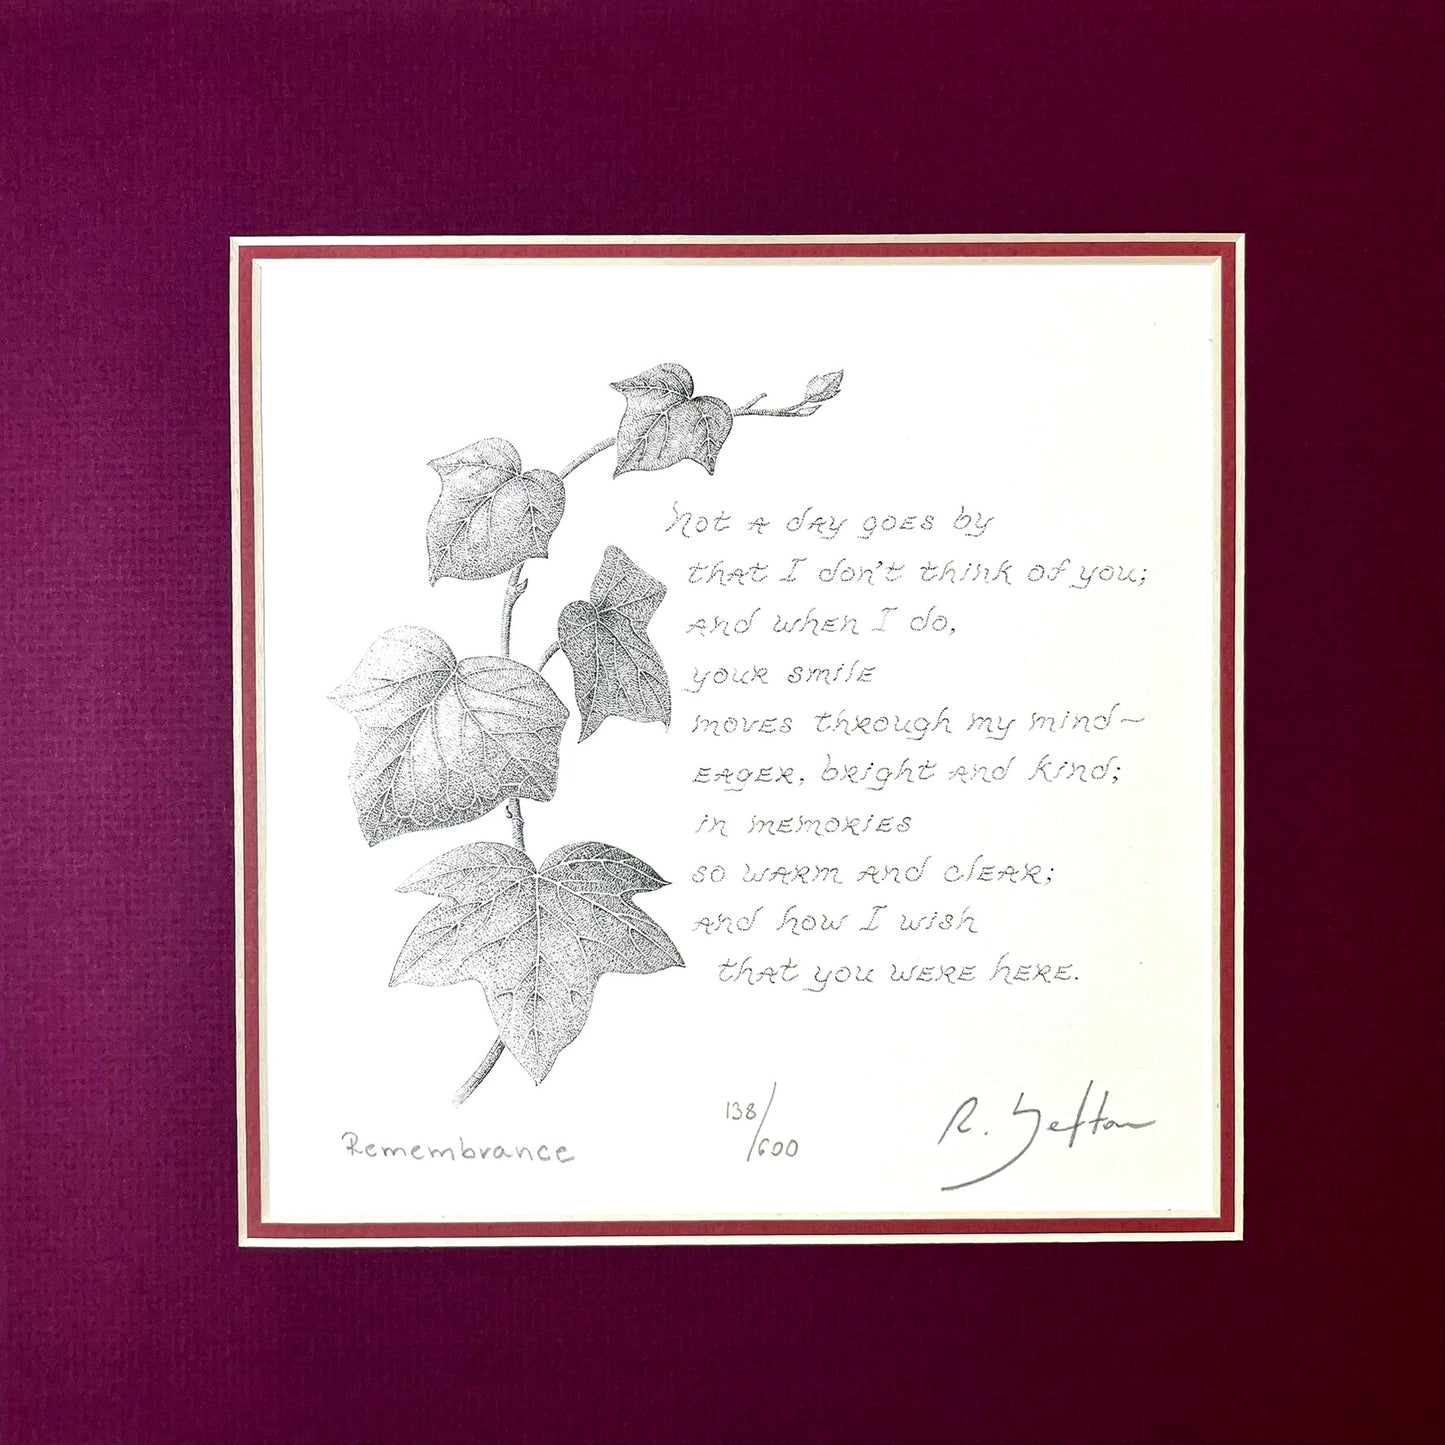 Not a day goes by
that I don't think of you;
and when I do,
your smile
moves through my mind—
eager, bright and kind;
in memories
so warm and clear;
and how I wish
that you were here.
Remembrance
138/600
R. Sefton